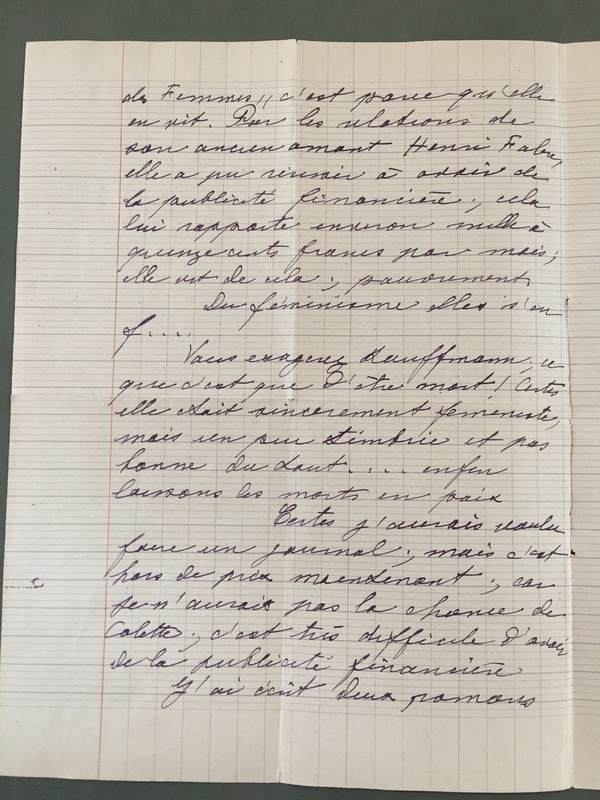 des Femmes,, c'est parce qu'elle
en vit. Par les relations de
son ancien amant Henri Fabre,
elle a pu réussir à avoir de
la publicité financière ; cela
lui rapporte environ mille à
quinze cents francs par mois ;
elle vit de cela ; pauvrement
Du féminisme elles s'en
f....
Vous exagérez Kauffmann ; ce
que c'est que d'être mort ! Certes
elle était sincèrement féministe,
mais un peu timbrée et pas
bonne du tout.... enfin
laissons les morts en paix
Certes j'aurais voulu
faire un journal ; mais c'est
hors de prix maintenant ; car
je n'aurais pas la chance de
Colette ; c'est très difficile d'avoir
de la publicité financière
J'ai écrit deux romans